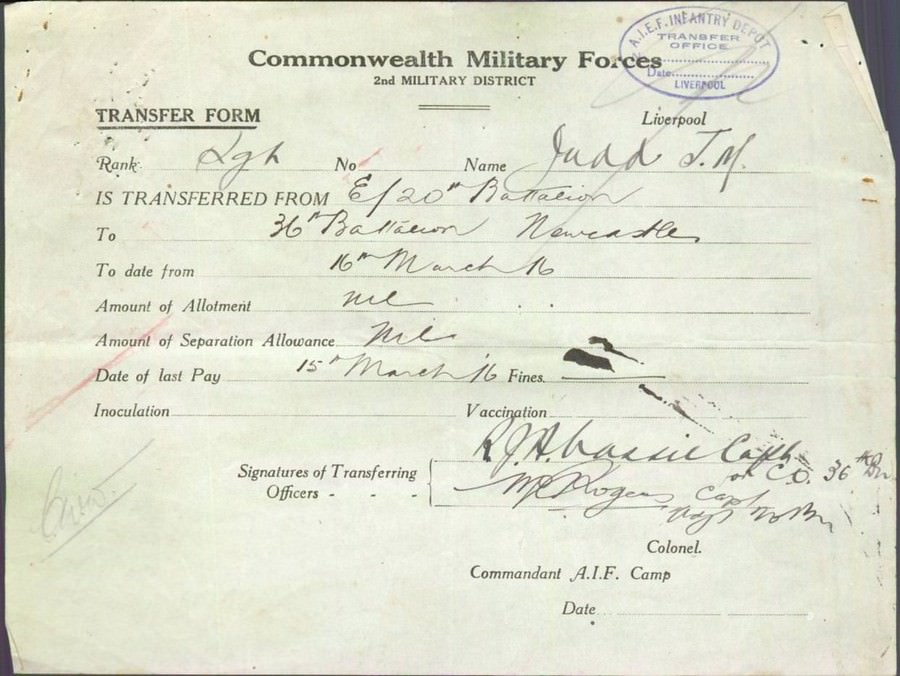 A.I.E.F. INFANTRY DEPOT
TRANSFER
OFFICE
Date
LIVERPOOL
Commonwealth Military Forces
2nd MILITARY DISTRICT
TRANSFER FORM
Liverpool
Rank No Name Judd J. M.
IS TRANSFERRED FROM E/20th Battalion
To 36th Battalion Newcastle
To date from 16th March 16
Amount of Allotment nil
Amount of Separation Allowance Nil
Date of last Pay 15th March '16 Fines
Inoculation Vaccination
R.J.A. Massie Capt
Signatures of Transferring for C.O. 36th Bn
Officers - - - Rogers Capt
Colonel.
Commandant A.I.F. Camp
Date